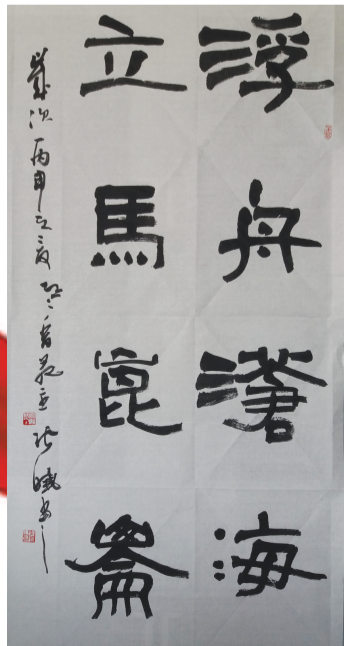 浮舟滄海
立馬崑崙
歲次丙申之夏
書之